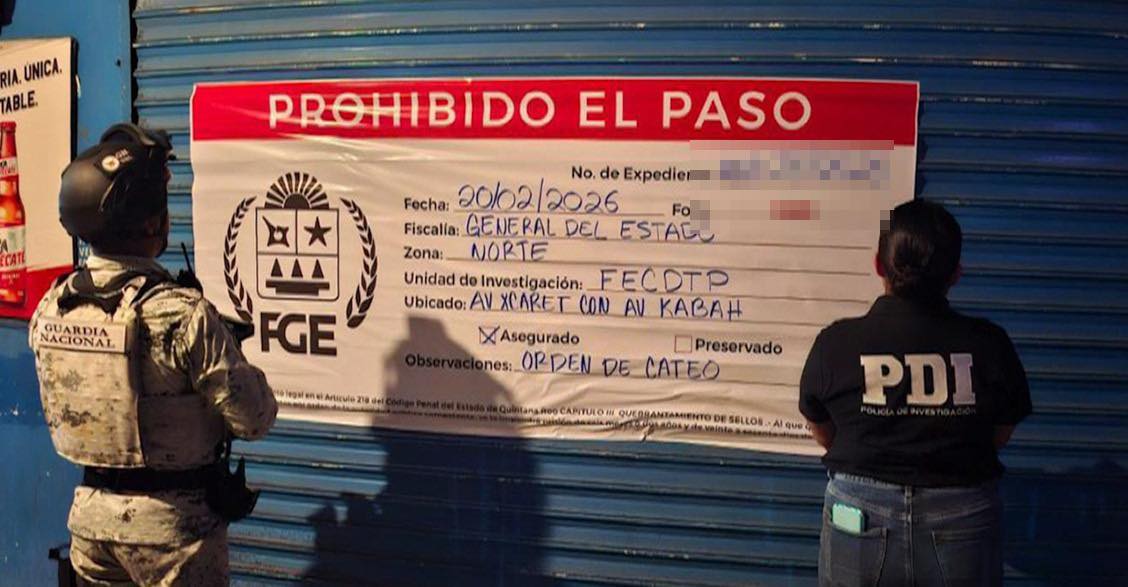 RIA. ÚNICA.
TABLE.
GUARDIA
NACIONAL
PROHIBIDO EL PASO
No. de Expedien
Fecha: 20/02/2026 Fo
Fiscalía: GENERAL DEL ESTADO
Zona: NORTE
Unidad de Investigación: FECDTP
Ubicado: AV XCARET CON AV KABAH
Asegurado Preservado
Observaciones: ORDEN DE CATEO
FGE
legal en el Artículo 218 del Código Penal del Estado de Quintana Roo CAPITULO III QUEBRANTAMIENTO DE SELLOS.- Al que
PDI
POLICÍA DE INVESTIGACIÓN